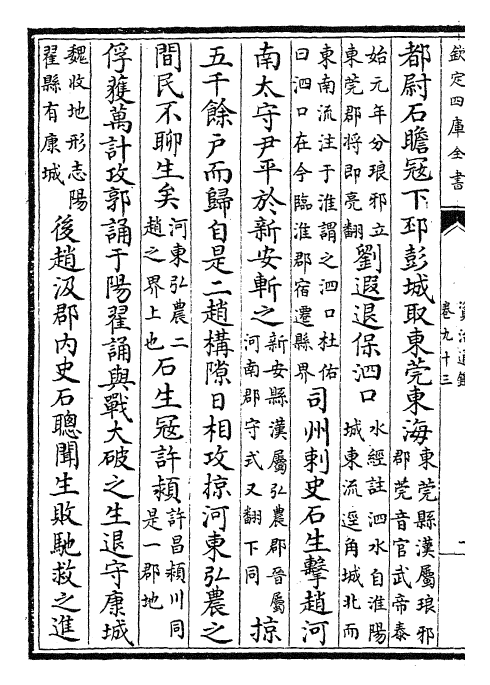 欽定四庫全書
資治通鑑
卷九十三
一
都尉石瞻冦下邳彭城取東莞東海東莞縣漢屬琅邪郡莞音官武帝泰
始元年分琅邪立東莞郡將即亮翻劉遐退保泗口水經註泗水自淮陽城東流逕角城北而
東南流注于淮謂之泗口杜佑曰泗口在今臨淮郡宿遷縣界司州刺史石生擊趙河
南太守尹平於新安斬之新安縣漢屬弘農郡晉屬河南郡守式又翻下同掠
五千餘户而歸自是二趙構隙日相攻掠河東弘農之
間民不聊生矣河東弘農二趙之界上也石生冦許潁許昌潁川同是一郡地
俘獲萬計攻郭誦于陽翟誦與戰大破之生退守康城
魏收地形志陽翟縣有康城後趙汲郡内史石聰聞生敗馳救之進